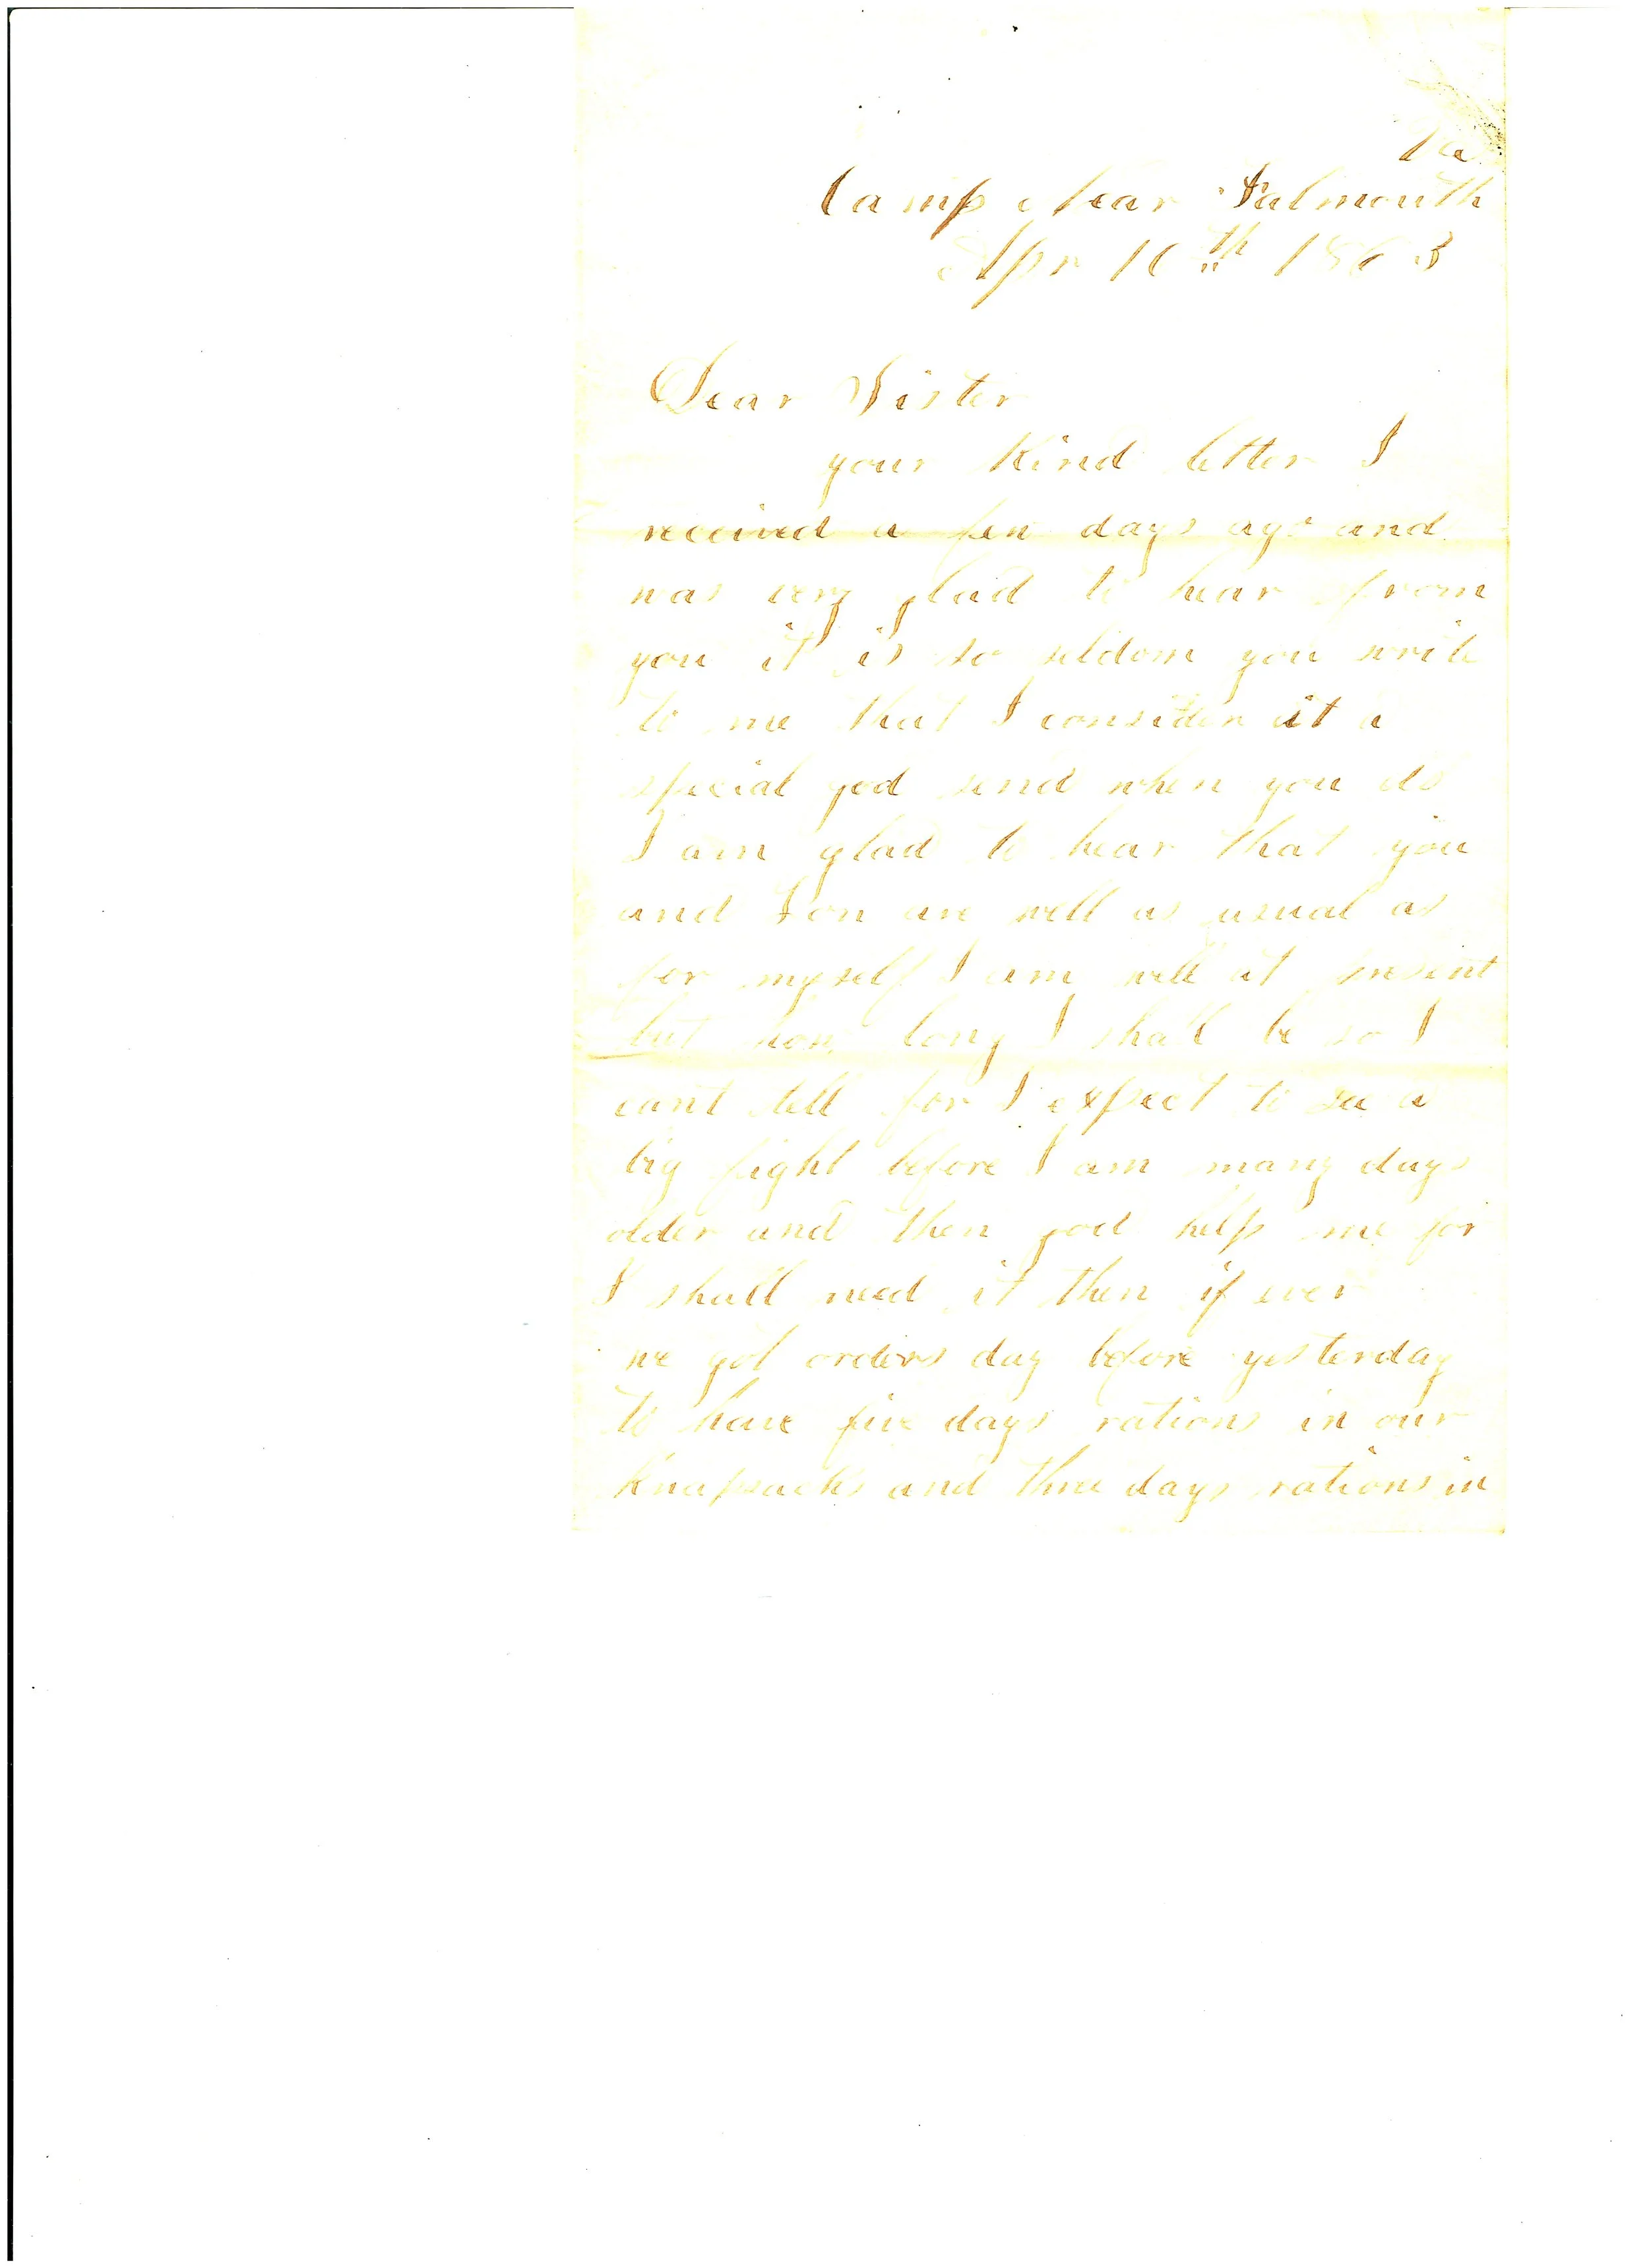 Va
Camp Near Falmouth
Apr 16th 1863
Dear Sister
your kind letter I
received a few days ago and
was very glad to hear from
you it is so seldom you write
to me that I consider it a
special god send when you do
I am glad to hear that you
and Fon are well as usual as
for myself I am well at present
but how long I shall be so I
cant tell for I expect to see a
big fight before I am many days
older and then god help me for
I shall need it then if ever
we got orders day before yesterday
to have five days rations in our
knapsacks and three days rations in